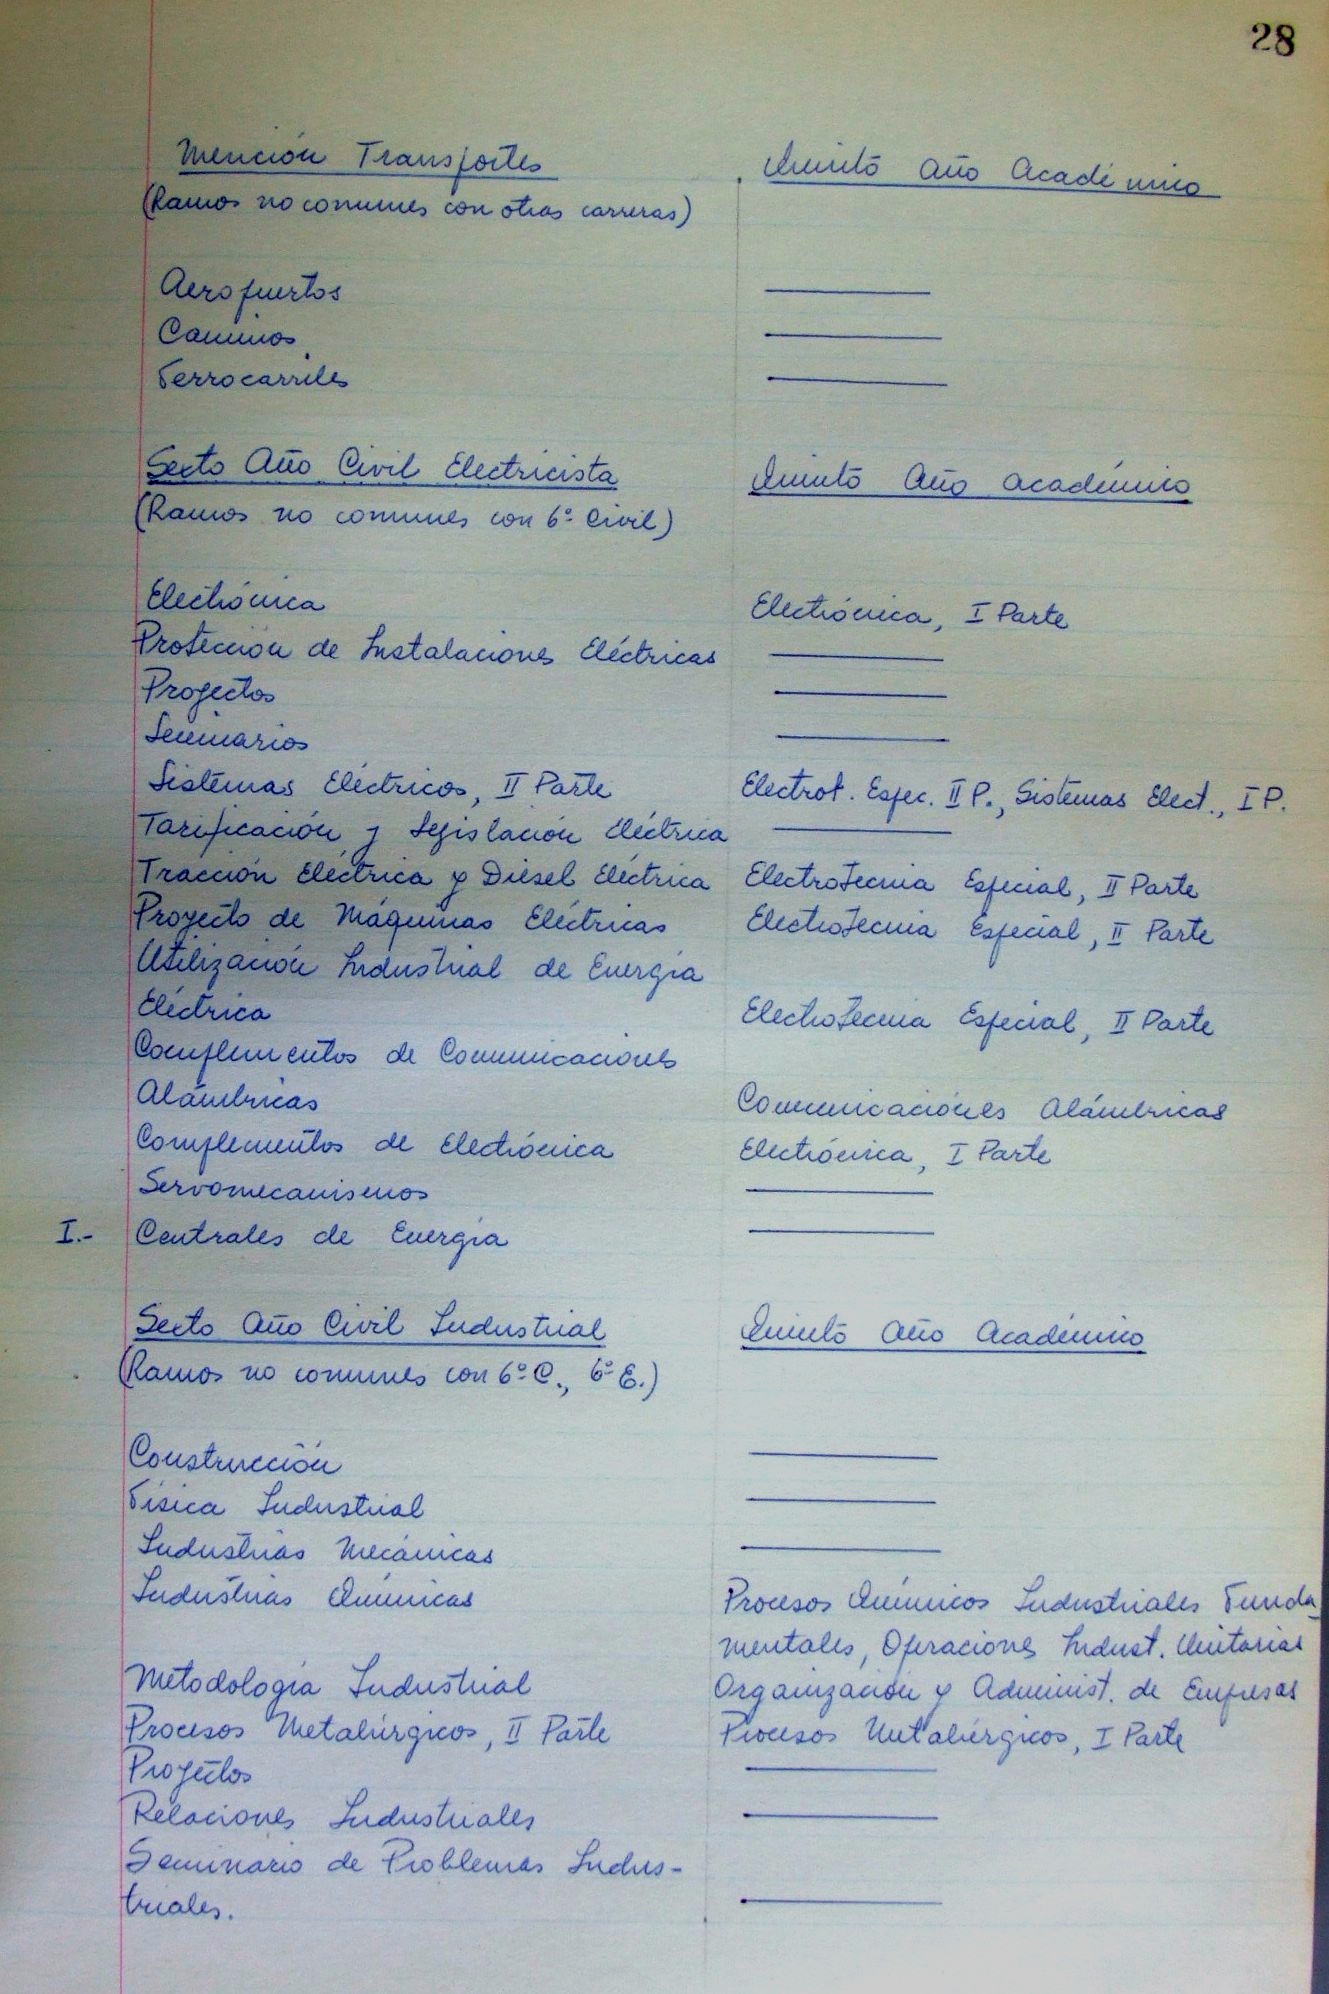 28
Mención Transportes
Quinto Año Académico
(Ramos no comunes con otras carreras)
Aeropuertos
Caminos
Ferrocarriles
Sexto Año Civil Electricista
Quinto Año académico
(Ramos no comunes con 6º Civil)
Electrónica
Electrónica, I Parte
Protección de Instalaciones Eléctricas
Proyectos
Seminarios
Sistemas Eléctricos, II Parte
Electrot. Espec. II P., Sistemas Elect., I P.
Tarificación y Legislación Eléctrica
Tracción Eléctrica y Diesel Eléctrica
Electrotecnia Especial, II Parte
Proyecto de Máquinas Eléctricas
Electrotecnia Especial, II Parte
Utilización Industrial de Energía
Eléctrica
Electrotecnia Especial, II Parte
Complementos de Comunicaciones
Alámbricas
Comunicaciones Alámbricas
Complementos de Electrónica
Electrónica, I Parte
Servomecanismos
I.- Centrales de Energía
Sexto Año Civil Industrial
Quinto Año Académico
(Ramos no comunes con 6º C., 6º E.)
Construcción
Física Industrial
Industrias Mecánicas
Industrias Químicas
Procesos Químicos Industriales Funda-
mentales, Operaciones Indust. Unitarias
Metodología Industrial
Organización y Administ. de Empresas
Procesos Metalúrgicos, II Parte
Procesos Metalúrgicos, I Parte
Proyectos
Relaciones Industriales
Seminario de Problemas Indus-
triales.